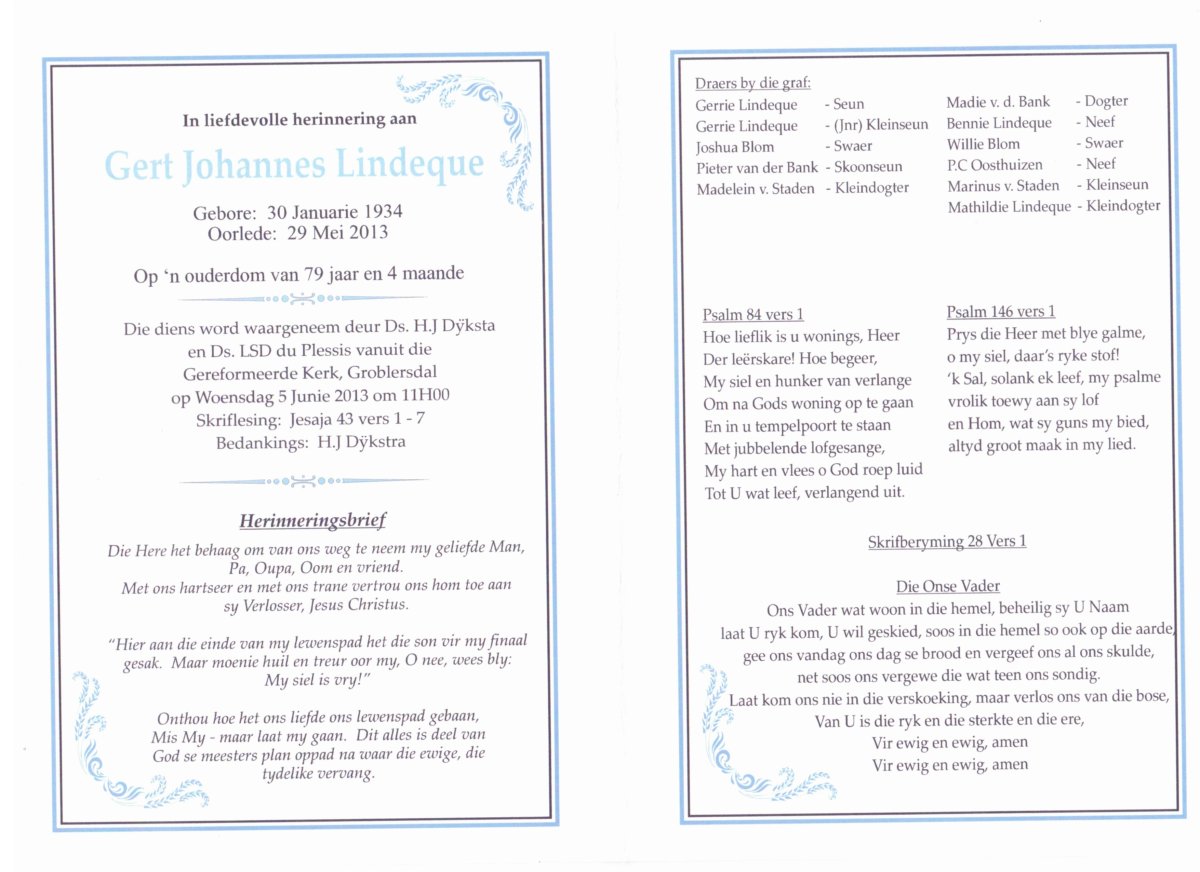 In liefdevolle herinnering aan
Gert Johannes Lindeque
Gebore: 30 Januarie 1934
Oorlede: 29 Mei 2013
Op ‘n ouderdom van 79 jaar en 4 maande
Die diens word waargeneem deur Ds. H.J Dÿksta
en Ds. LSD du Plessis vanuit die
Gereformeerde Kerk, Groblersdal
op Woensdag 5 Junie 2013 om 11H00
Skriflesing: Jesaja 43 vers 1 - 7
Bedankings: H.J Dÿkstra
Herinneringsbrief
Die Here het behaag om van ons weg te neem my geliefde Man,
Pa, Oupa, Oom en vriend.
Met ons hartseer en met ons trane vertrou ons hom toe aan
sy Verlosser, Jesus Christus.
“Hier aan die einde van my lewenspad het die son vir my finaal
gesak. Maar moenie huil en treur oor my, O nee, wees bly:
My siel is vry!”
Onthou hoe het ons liefde ons lewenspad gebaan,
Mis My - maar laat my gaan. Dit alles is deel van
God se meesters plan oppad na waar die ewige, die
tydelike vervang.
Draers by die graf:
Gerrie Lindeque - Seun
Gerrie Lindeque - (Jnr) Kleinseun
Joshua Blom - Swaer
Pieter van der Bank - Skoonseun
Madelein v. Staden - Kleindogter
Madie v. d. Bank - Dogter
Bennie Lindeque - Neef
Willie Blom - Swaer
P.C Oosthuizen - Neef
Marinus v. Staden - Kleinseun
Mathildie Lindeque - Kleindogter
Psalm 84 vers 1
Hoe lieflik is u wonings, Heer
Der leërskare! Hoe begeer,
My siel en hunker van verlange
Om na Gods woning op te gaan
En in u tempelpoort te staan
Met jubbelende lofgesange,
My hart en vlees o God roep luid
Tot U wat leef, verlangend uit.
Psalm 146 vers 1
Prys die Heer met blye galme,
o my siel, daar’s ryke stof!
‘k Sal, solank ek leef, my psalme
vrolik toewy aan sy lof
en Hom, wat sy guns my bied,
altyd groot maak in my lied.
Skrifberyming 28 Vers 1
Die Onse Vader
Ons Vader wat woon in die hemel, beheilig sy U Naam
laat U ryk kom, U wil geskied, soos in die hemel so ook op die aarde,
gee ons vandag ons dag se brood en vergeef ons al ons skulde,
net soos ons vergewe die wat teen ons sondig.
Laat kom ons nie in die verskoeking, maar verlos ons van die bose,
Van U is die ryk en die sterkte en die ere,
Vir ewig en ewig, amen
Vir ewig en ewig, amen